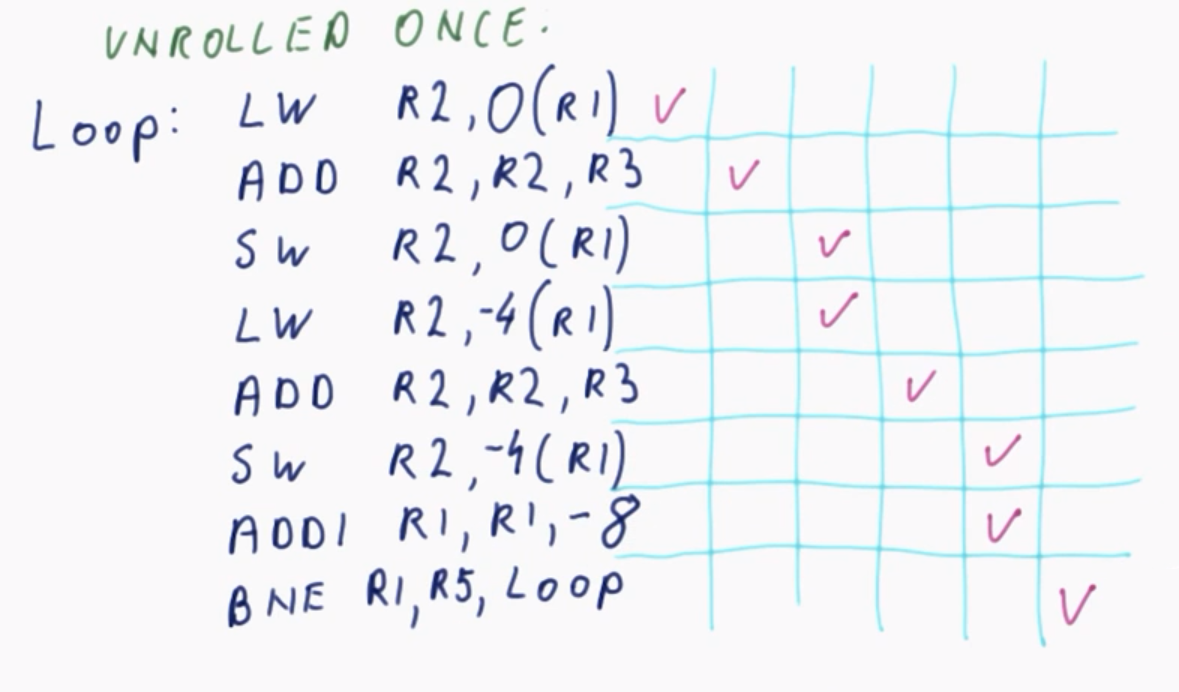 UNROLLED ONCE.
Loop: LW R2,0(R1) ✓
ADD R2,R2,R3 ✓
SW R2,0(R1) ✓
LW R2,-4(R1) ✓
ADD R2,R2,R3 ✓
SW R2,-4(R1) ✓
ADDI R1,R1,-8 ✓
BNE R1,R5,Loop ✓